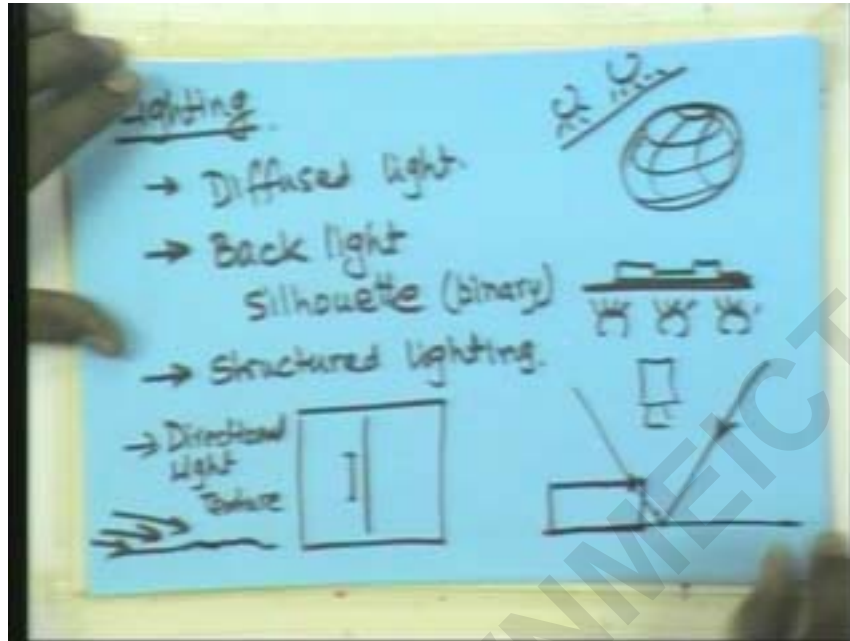 Lighting
→ Diffused light.
→ Back light
Silhouette (binary)
→ Structured lighting.
→ Directional
Light
Texture
NMEICT